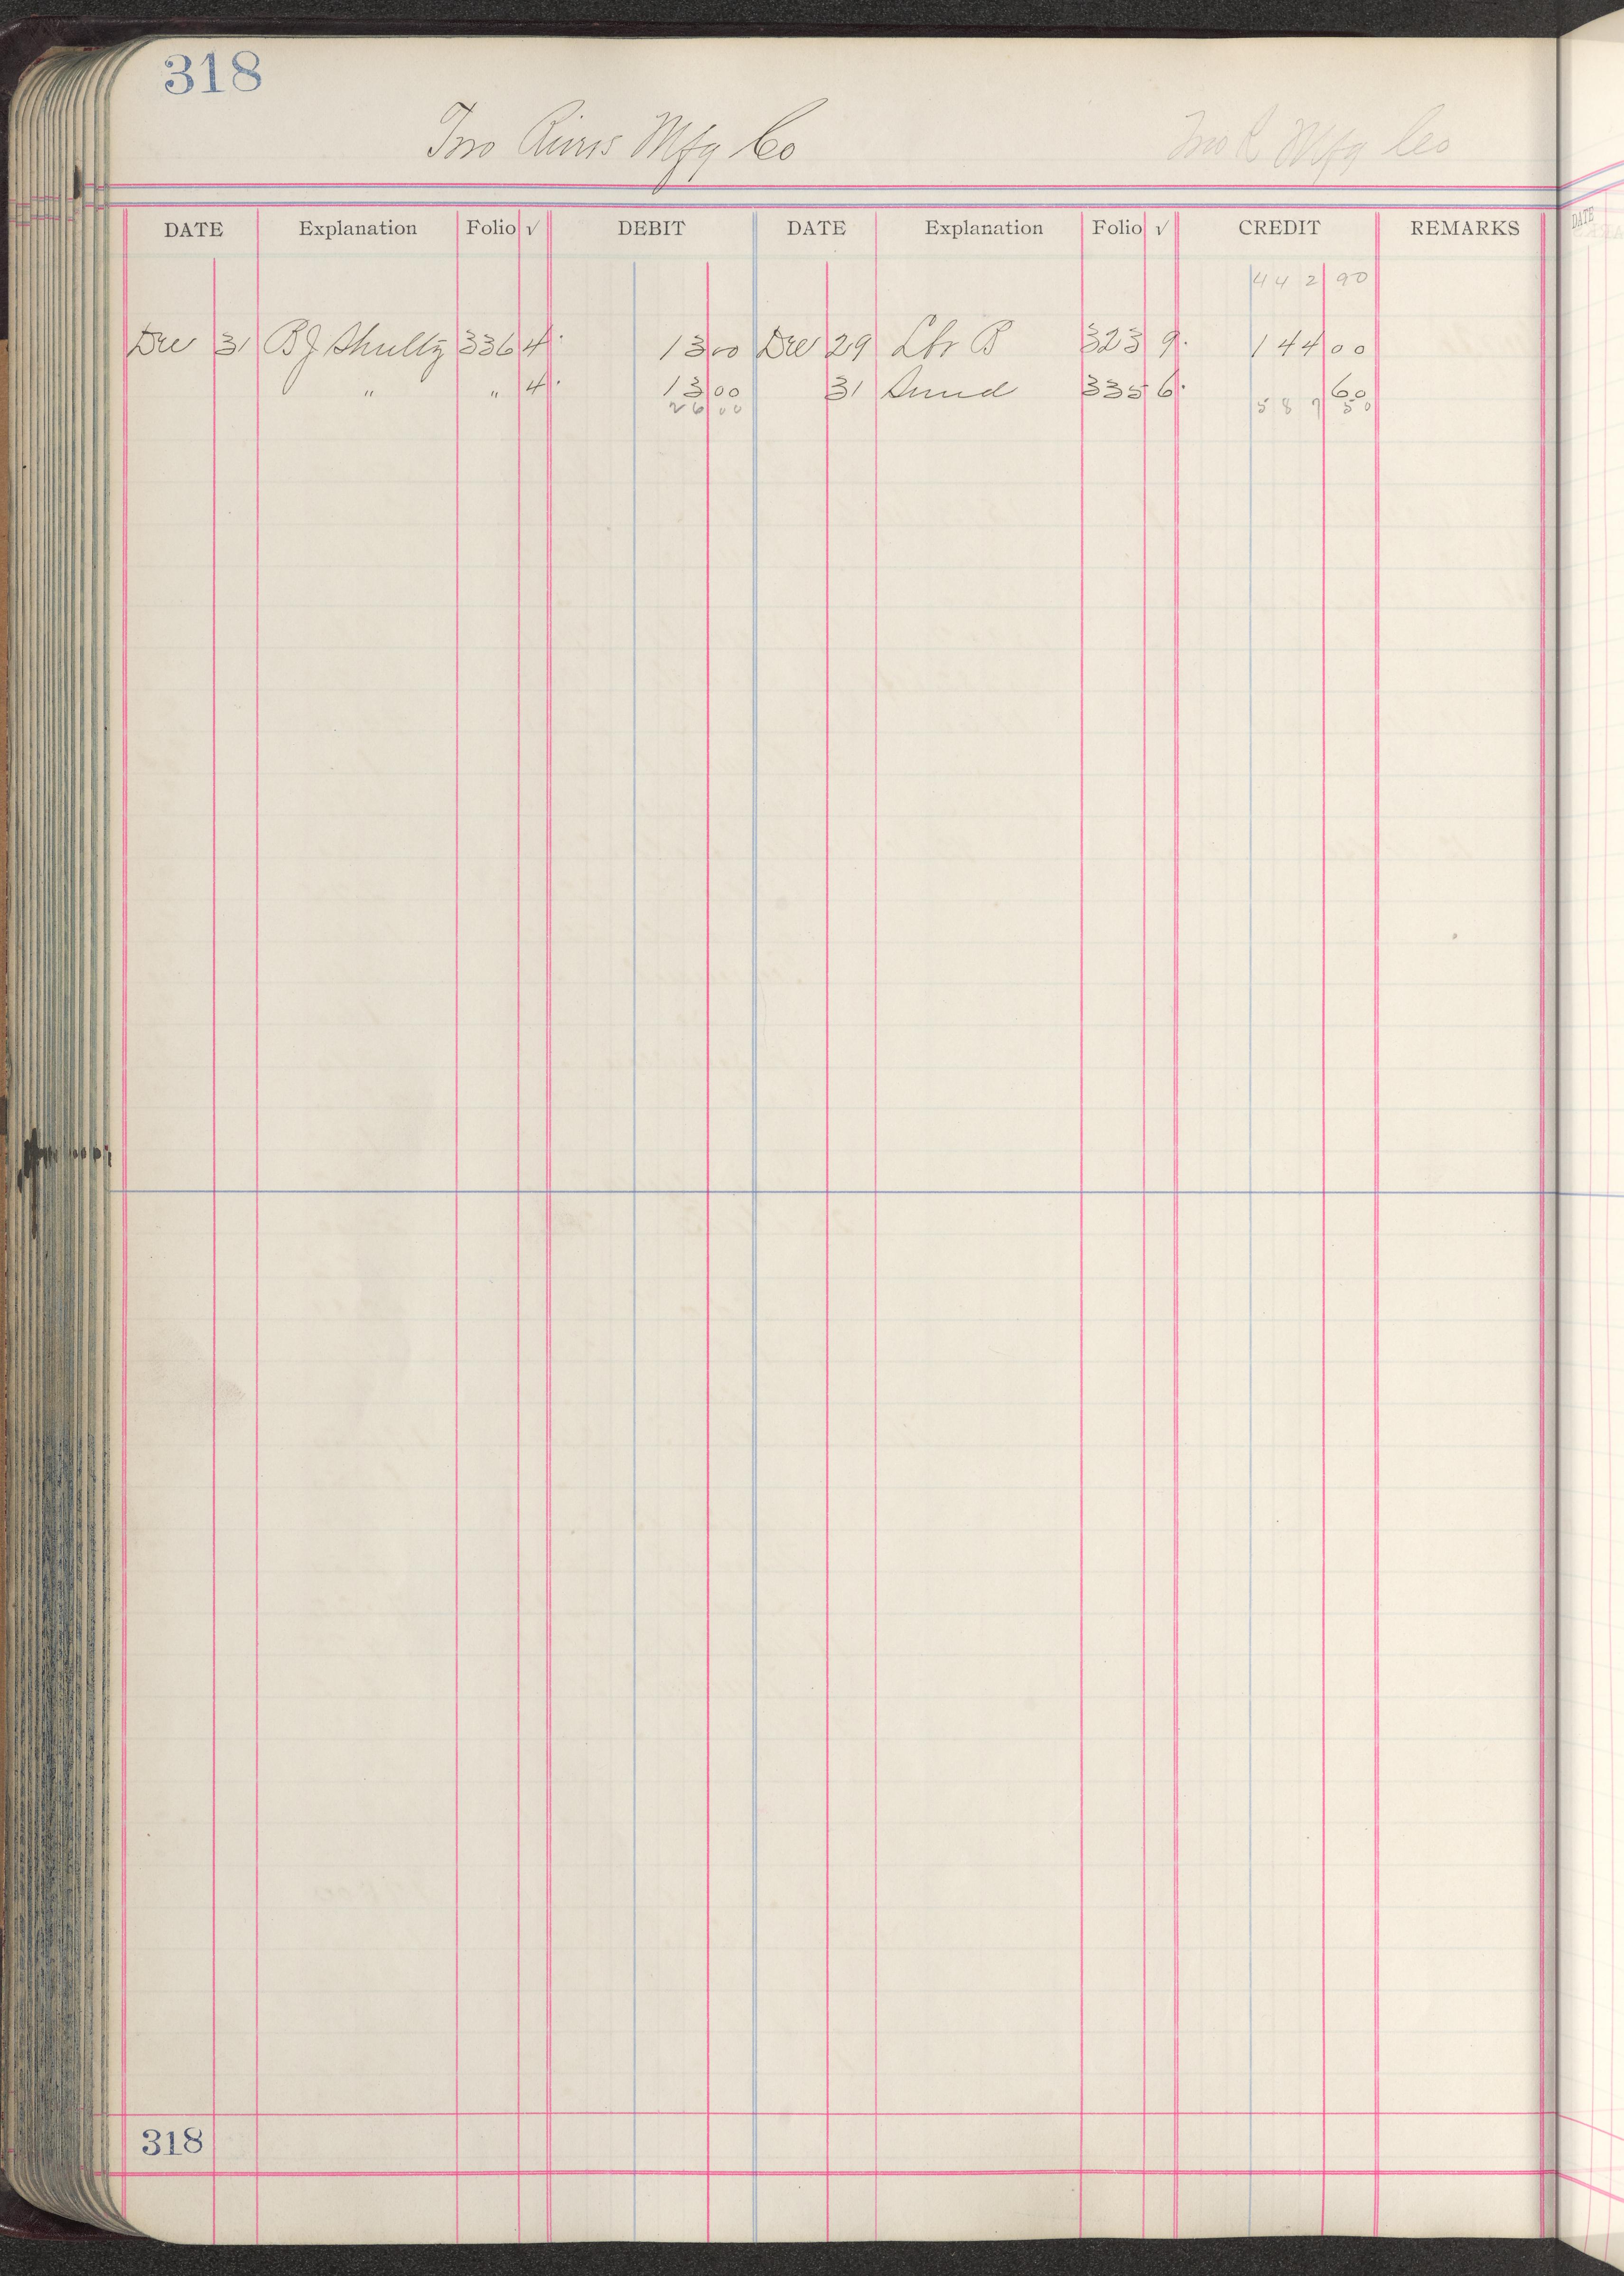 318
Two Rivers Mfg Co
Two R Mfg Co
DATE Explanation Folio √ DEBIT DATE Explanation Folio √ CREDIT REMARKS
442 90
Dec 31 B J Shultz 336 4 13 00 Dec 29 Lbr B 323 9 144 00
" " 4 13 00 31 Sund 335 6 60
26 00 587 50
318
DATE